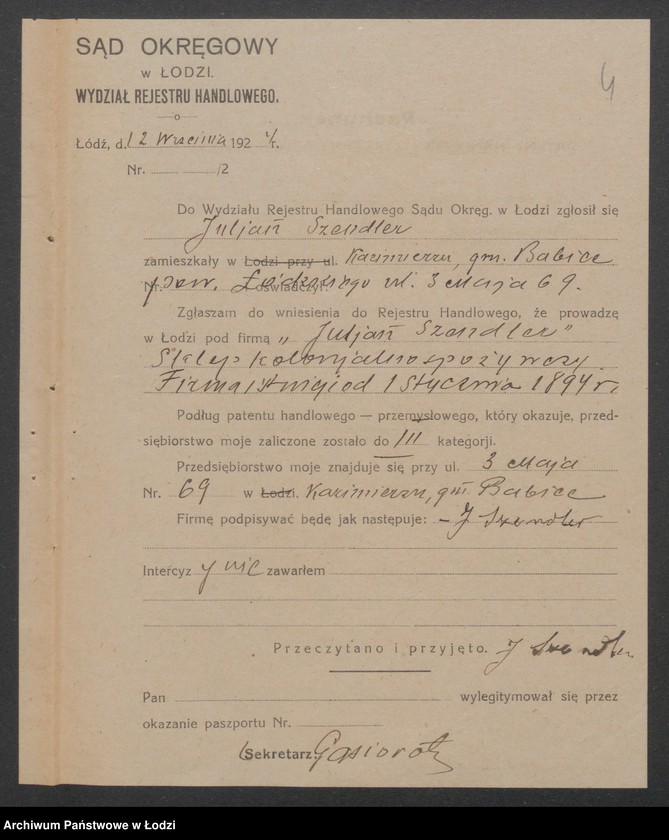 SĄD OKRĘGOWY
w ŁODZI.
WYDZIAŁ REJESTRU HANDLOWEGO.
4
Łódź, d. 12 Września 1924 r.
Nr. /2
Do Wydziału Rejestru Handlowego Sądu Okręg. w Łodzi zgłosił się
Juljan Szendler
zamieszkały w Łodzi przy ul. Kazimierzu, gm. Babice
Nr. oświadczył: pow. Łódzkiego ul. 3 Maja 69.
Zgłaszam do wniesienia do Rejestru Handlowego, że prowadzę
w Łodzi pod firmą „Juljan Szendler"
Sklep kolonjalno spożywczy
Firma istnieje od 1 Stycznia 1894 r.
Podług patentu handlowego — przemysłowego, który okazuje, przed-
siębiorstwo moje zaliczone zostało do III kategorji.
Przedsiębiorstwo moje znajduje się przy ul. 3 Maja
Nr. 69 w Łodzi. Kazimierzu, gm. Babice
Firmę podpisywać będę jak następuje: — J Szendler
Intercyz y nie zawarłem
Przeczytano i przyjęto. J Szendler
Pan wylegitymował się przez
okazanie paszportu Nr.
Sekretarz:
Archiwum Państwowe w Łodzi